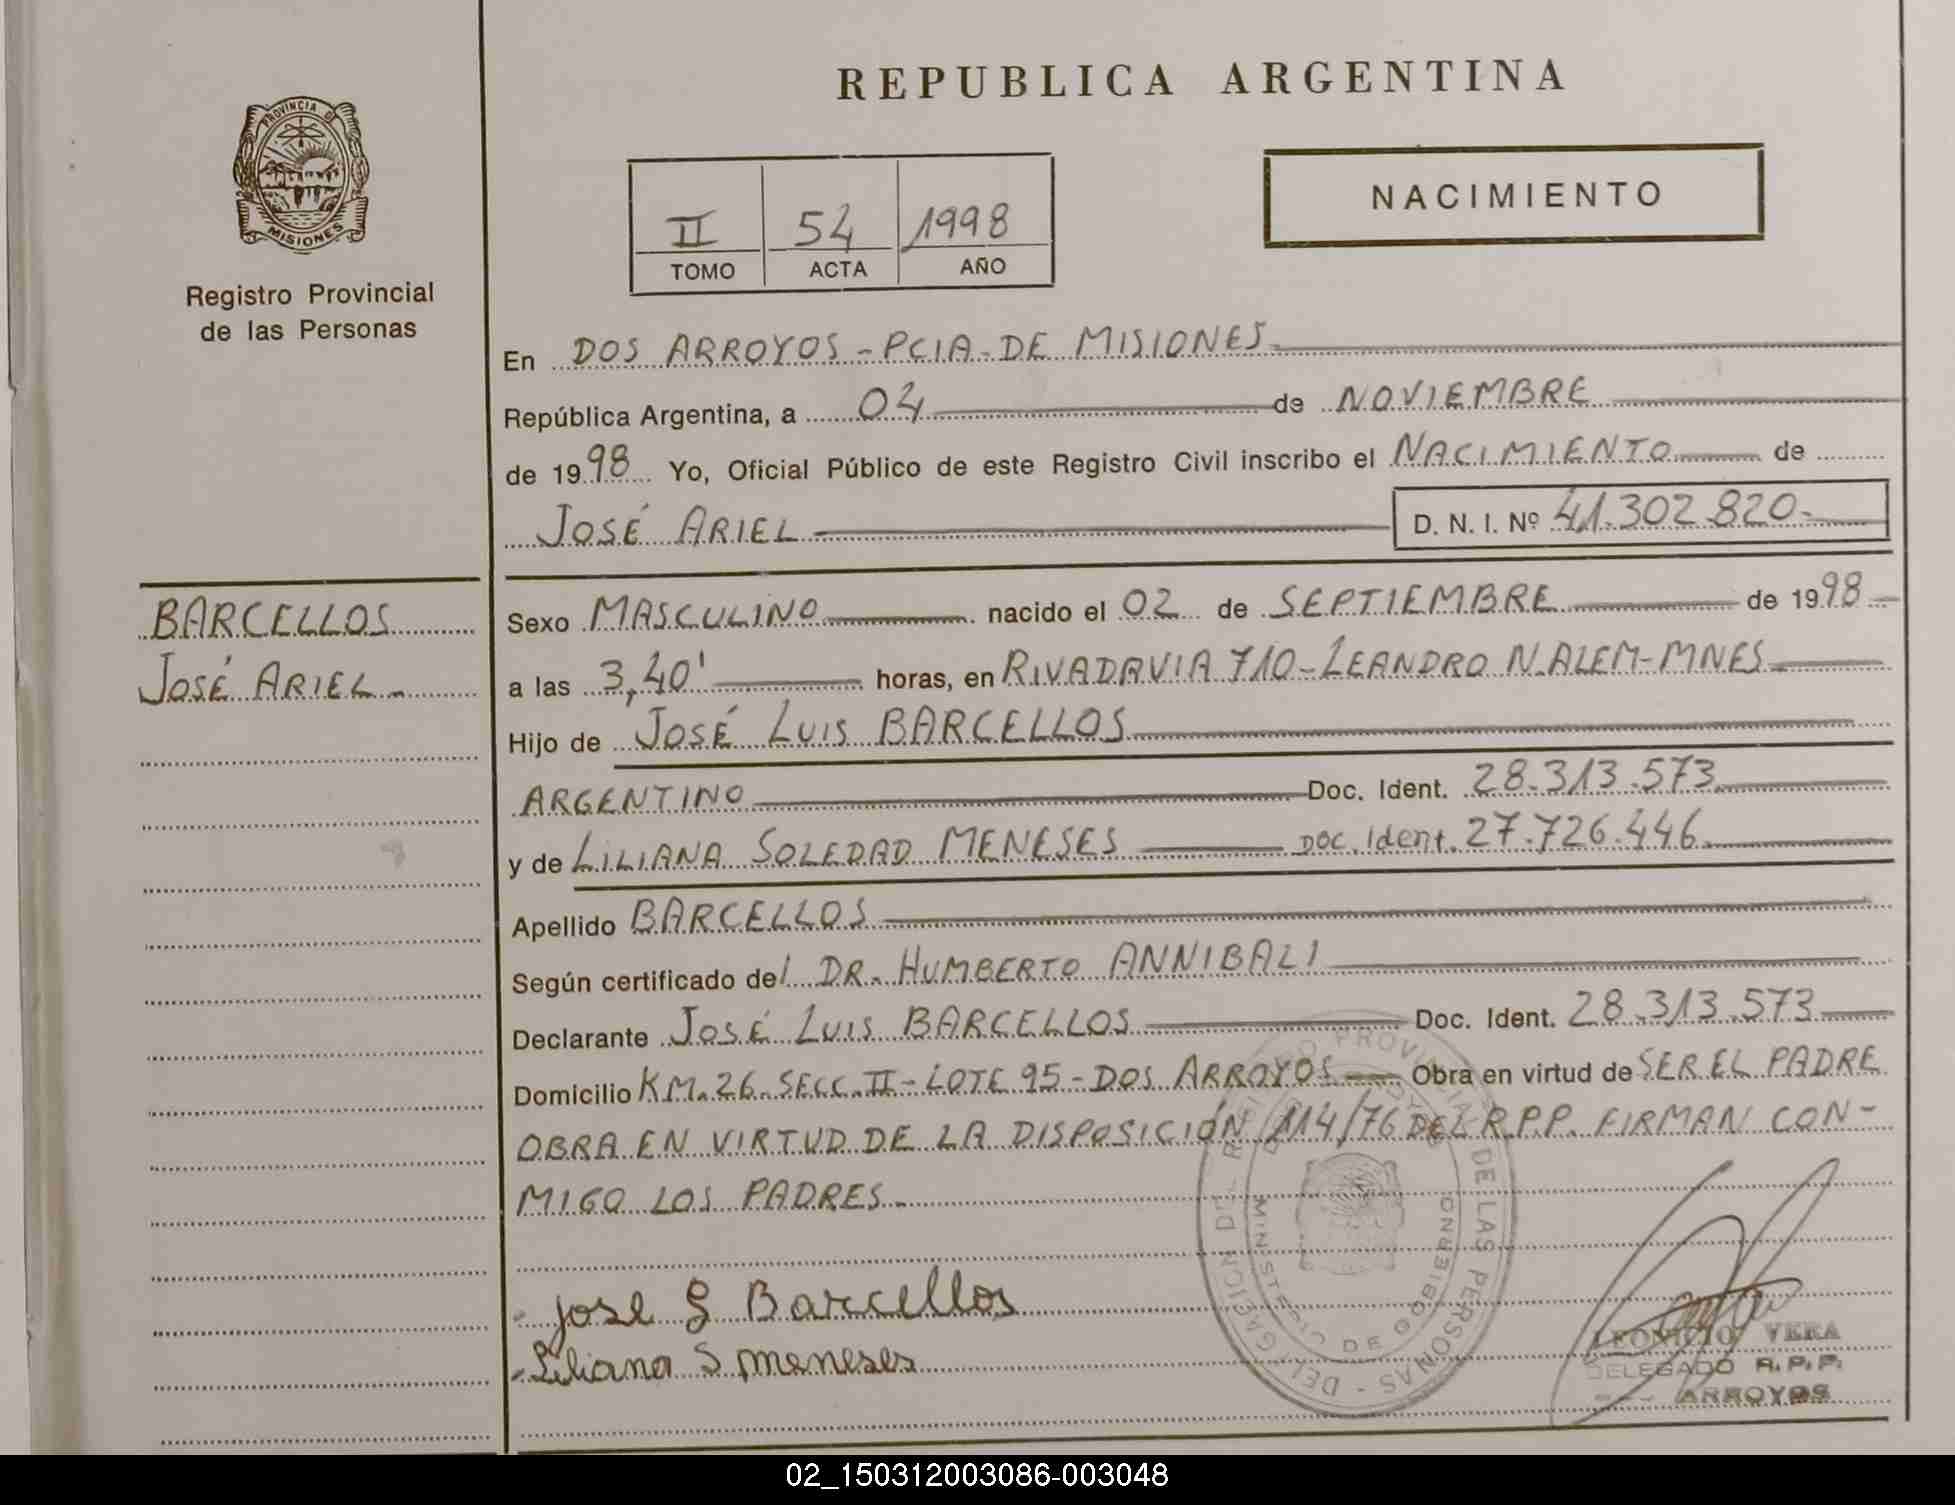 REPUBLICA ARGENTINA
PROVINCIA DE
MISIONES
Registro Provincial
de las Personas
NACIMIENTO
II 54 1998
TOMO ACTA AÑO
En DOS ARROYOS - PCIA. DE MISIONES
República Argentina, a 04 de NOVIEMBRE
de 1998 Yo, Oficial Público de este Registro Civil inscribo el NACIMIENTO de
JOSÉ ARIEL D. N. I. Nº 41.302.820.-
BARCELLOS
JOSÉ ARIEL.-
Sexo MASCULINO nacido el 02 de SEPTIEMBRE de 1998
a las 3,40' horas, en RIVADAVIA 710-LEANDRO N.ALEM-MNES
Hijo de JOSÉ LUIS BARCELLOS
ARGENTINO Doc. Ident. 28.313.573
y de LILIANA SOLEDAD MENESES DOC. Ident. 27.726.446
Apellido BARCELLOS
Según certificado del DR. HUMBERTO ANNIBALI
Declarante JOSÉ LUIS BARCELLOS Doc. Ident. 28.313.573
Domicilio KM. 26-SECC.II-LOTE 95-DOS ARROYOS Obra en virtud de SER EL PADRE
OBRA EN VIRTUD DE LA DISPOSICIÓN 114/76 DEL R.P.P. FIRMAN CON-
MIGO LOS PADRES.-
Jose L Barcellos
Liliana S. meneses
PROVINCIAL DE LAS PERSONAS - DELEGACION
MINISTERIO DE GOBIERNO
LEONICIO VERA
DELEGADO R.P.P.
ARROYOS
02_150312003086-003048